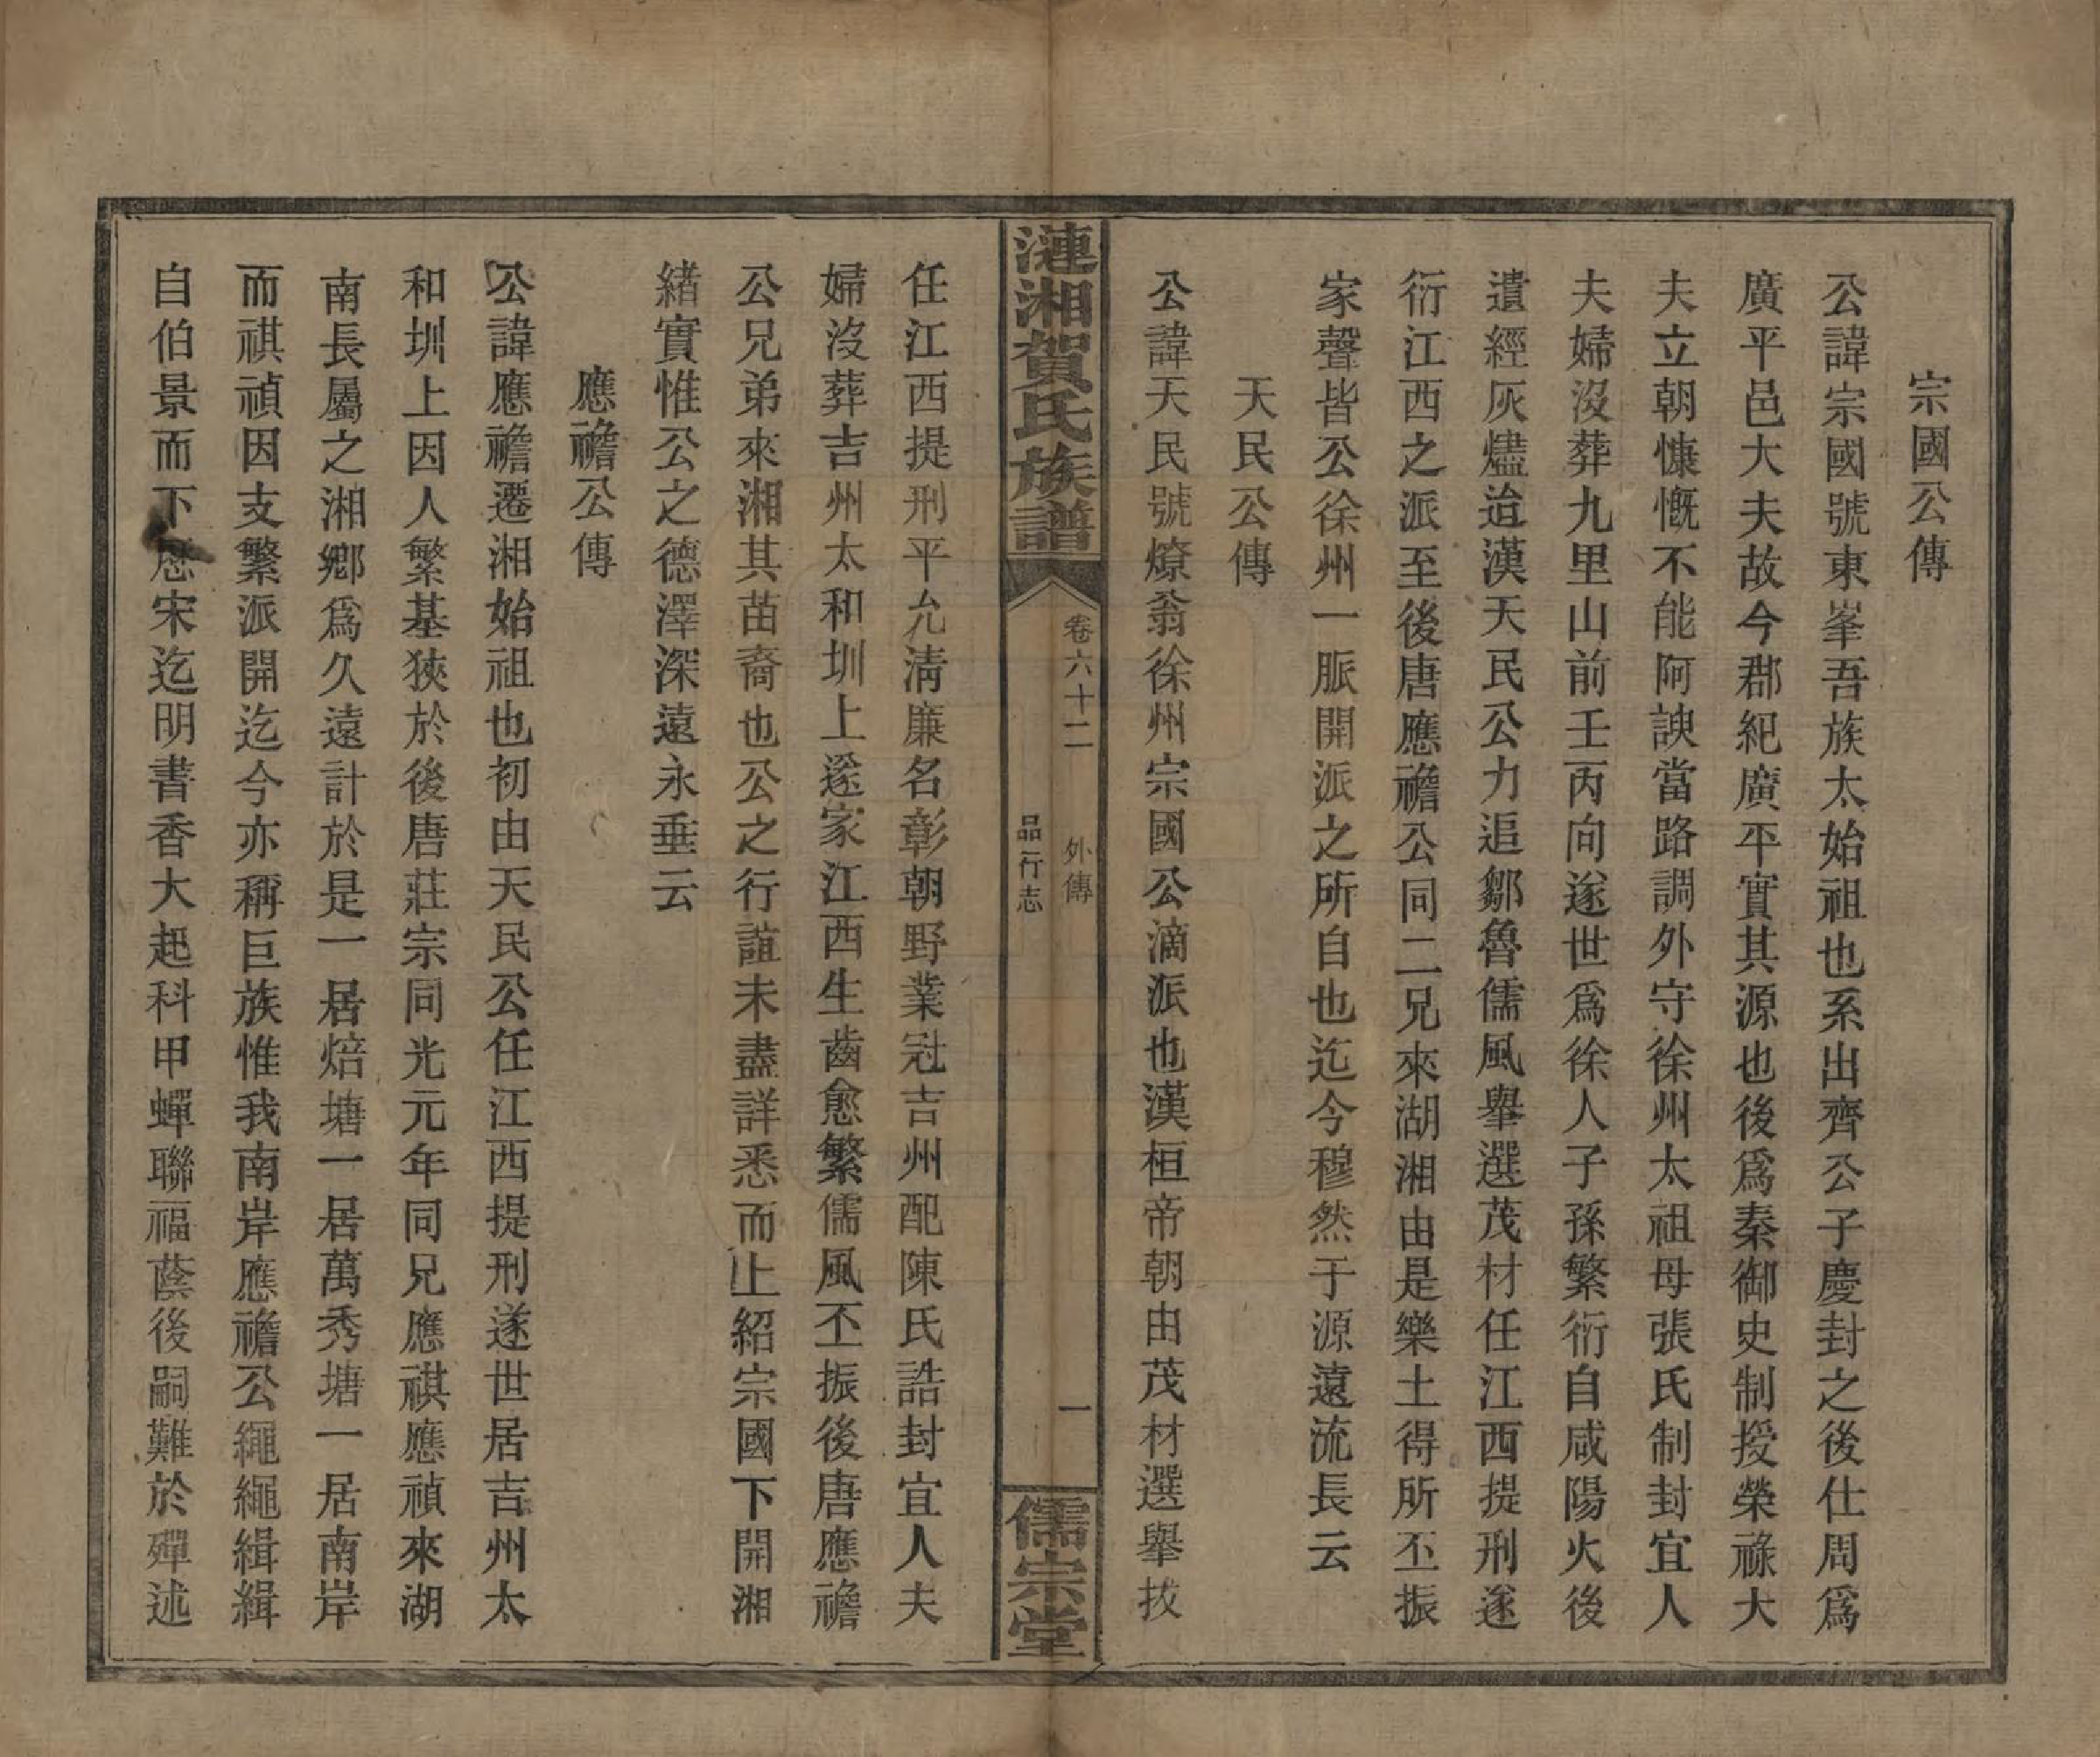 宗國公傳
公諱宗國號東峯吾族太始祖也系出齊公子慶封之後仕周爲
廣平邑大夫故今郡紀廣平實其源也後爲秦御史制授榮祿大
夫立朝慷慨不能阿諛當路調外守徐州太祖母張氏制封宜人
夫婦沒葬九里山前壬丙向遂世爲徐人子孫繁衍自咸陽火後
遺經灰燼迨漢天民公力追鄒魯儒風舉選茂材任江西提刑遂
衍江西之派至後唐應襜公同二兄來湖湘由是樂土得所丕振
家聲皆公徐州一脈開派之所自也迄今穆然于源遠流長云
天民公傳
公諱天民號燎翁徐州宗國公滴派也漢桓帝朝由茂材選舉拔
漣湘賀氏族譜
卷六十二　外傳
品行志
一
儒宗堂
任江西提刑平允淸廉名彰朝野業冠吉州配陳氏誥封宜人夫
婦沒葬吉州太和圳上遂家江西生齒愈繁儒風丕振後唐應襜
公兄弟來湘其苗裔也公之行誼未盡詳悉而上紹宗國下開湘
緒實惟公之德澤深遠永垂云
應襜公傳
公諱應襜遷湘始祖也初由天民公任江西提刑遂世居吉州太
和圳上因人繁基狹於後唐莊宗同光元年同兄應祺應禎來湖
南長屬之湘鄉爲久遠計於是一居焙塘一居萬秀塘一居南岸
而祺禎因支繁派開迄今亦稱巨族惟我南岸應襜公繩繩緝緝
自伯景而下歷宋迄明書香大起科甲蟬聯福蔭後嗣難於殫述